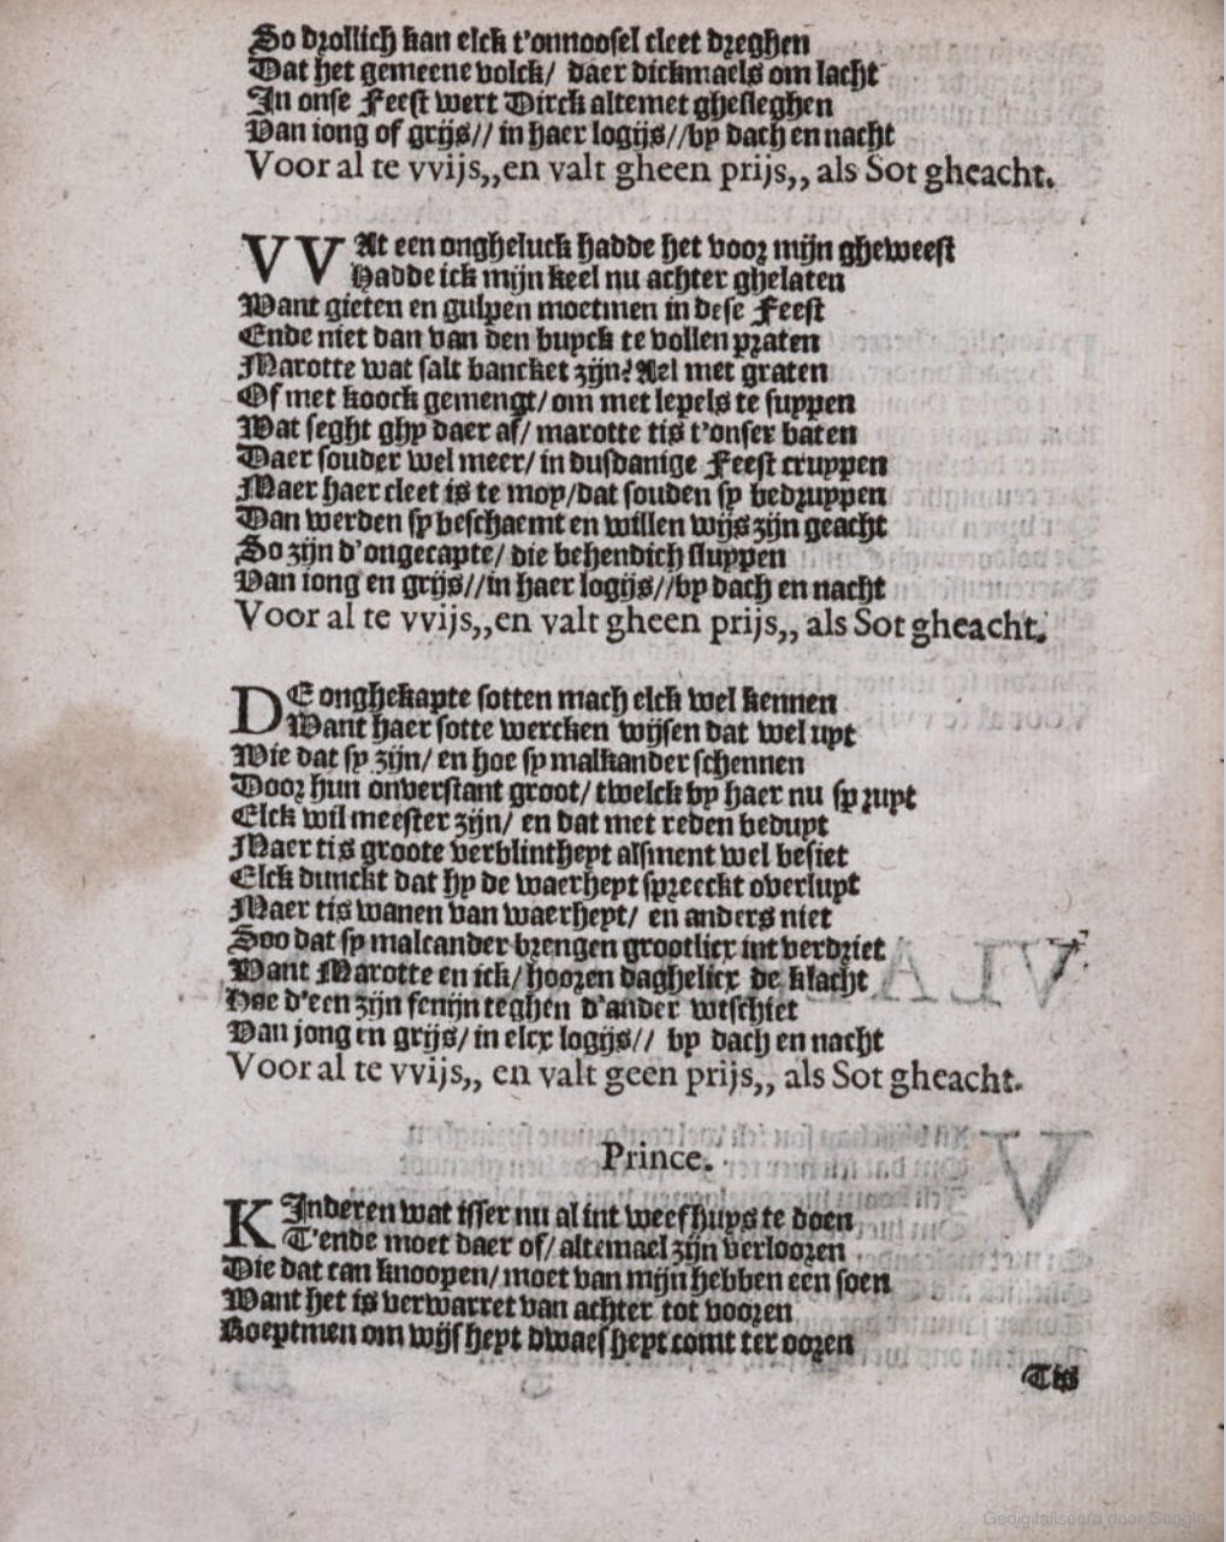 So drollich kan elck t'onnoosel cleet dreghen
Dat het gemeene volck/ daer dickmaels om lacht
In onse Feest wert Dirck altemet ghesleghen
Van iong of grijs// in haer logijs//by dach en nacht
Voor al te vvijs,,en valt gheen prijs,, als Sot gheacht.
VVAt een ongheluck hadde het voor mijn gheweest
Hadde ick mijn keel nu achter ghelaten
Want gieten en gulpen moetmen in dese Feest
Ende niet dan van den buyck te vollen praten
Marotte wat salt bancket zijn? Ael met graten
Of met koock gemengt/ om met lepels te suppen
Wat seght ghy daer af/ marotte tis t'onser baten
Daer souder wel meer/ in dusdanige Feest cruppen
Maer haer cleet is te moy/dat souden sy bedruppen
Dan werden sy beschaemt en willen wijs zijn geacht
So zijn d'ongecapte/ die behendich sluppen
Van iong en grijs//in haer logijs//by dach en nacht
Voor al te vvijs,,en valt gheen prijs,, als Sot gheacht.
DE onghekapte sotten mach elck wel kennen
Want haer sotte wercken wijsen dat wel uyt
Wie dat sy zijn/ en hoe sy malkander schennen
Door hun onverstant groot/ twelck by haer nu spruyt
Elck wil meester zijn/ en dat met reden beduyt
Maer tis groote verblintheyt alsment wel besiet
Elck dunckt dat hy de waerheyt spreeckt overluyt
Maer tis wanen van waerheyt/ en anders niet
Soo dat sy malcander brengen grootlicx int verdriet
Want Marotte en ick/ hooren daghelicx de klacht
Hoe d'een zijn fenijn teghen d'ander wtschiet
Van jong en grijs/ in elcx logijs// by dach en nacht
Voor al te vvijs,, en valt geen prijs,, als Sot gheacht.
Prince.
KInderen wat isser nu al int weefhuys te doen
T'ende moet daer of/ altemael zijn verlooren
Die dat can knoopen/ moet van mijn hebben een soen
Want het is verwarret van achter tot vooren
Roeptmen om wijsheyt dwaesheyt comt ter ooren
Tis
Gedigitaliseerd door Google